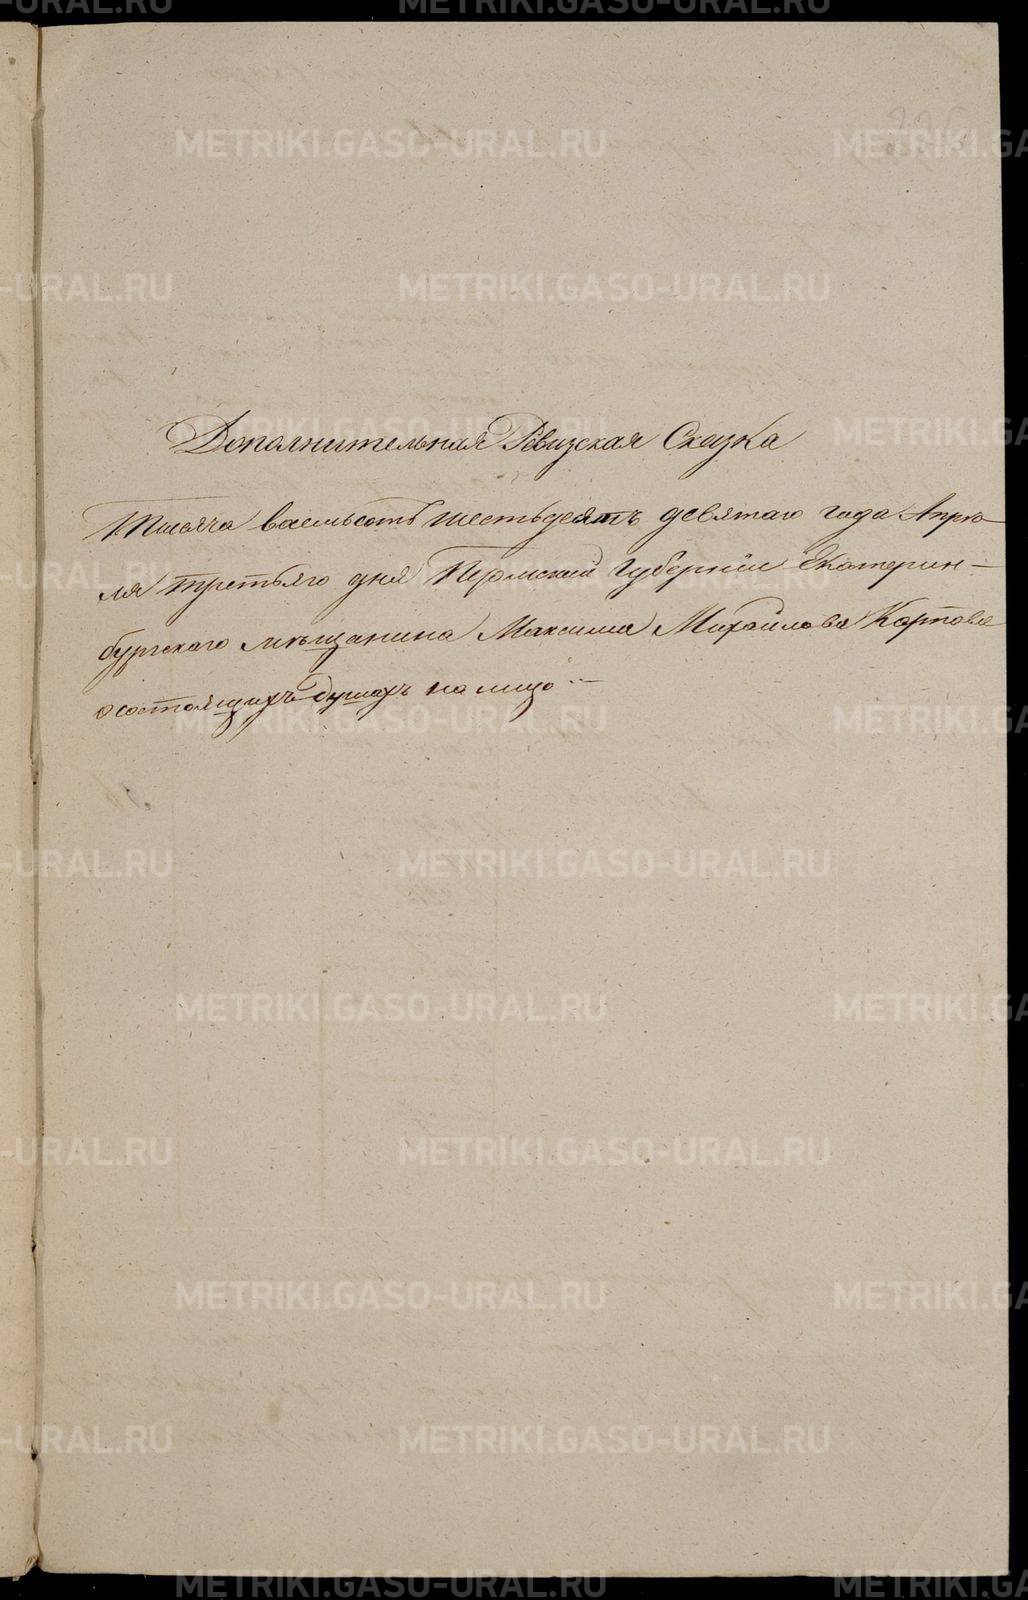 Дополнительная Ревизская Сказка
Тысяча восемьсотъ шестьдесятъ девятаго года Апре-
ля третьяго дня Пермской Губернии Екатерин-
бургского мѣщанина Максима Михайлова Карпова
о состоящихъ душахъ на лицо
METRIKI.GASO-URAL.RU